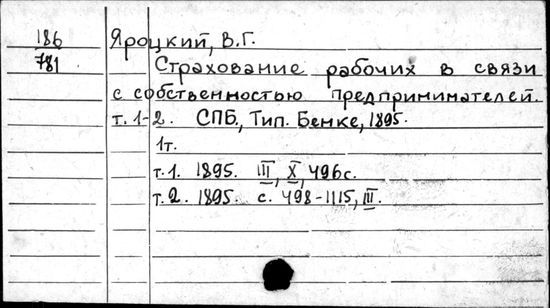 186 Яроцкий, В.Г.
781 Страхование рабочих в связи
с собственностью предпринимателей.
т. 1-2. СПБ., Тип. Бенке, 1895.
1т.
т.1. 1895. III, X, 496с.
т.2. 1895. с. 498-1115, III.